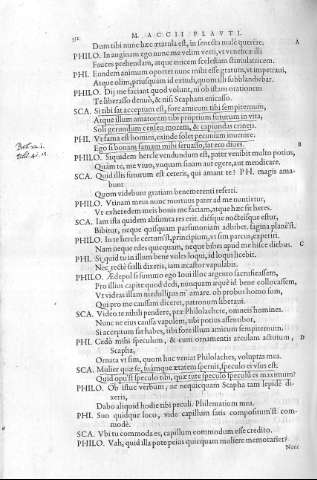 M. ACCII PLAVTI.
Dum tibi nunc hæc ætatula est, in senecta male querere. A
PHILO. In anginam ego nunc me velim verti, vt veneficæ illi
Fauces prehendam, atque enicem scelestam stimulatricem.
PHI. Eundem animum oportet nunc mihi esse gratum, vt impetraui,
Atque olim, priusquam id extudi, quum illi subblandiebar.
PHILO. Dij me faciant quod volunt, ni ob istam orationem
Te liberasso denuò, & nisi Scapham enicasso.
SCA. Si tibi sat acceptum est, fore amicum tibi sempiternum,
Atque illum amatorem tibi proprium futurum in vita,
Soli gerundum censeo morem, & capiundas crineis.
PHI. Vt fama est homini, exinde solet pecuniam inuenire.
Ego si bonam famam mihi seruasso, sat ero diues. B
PHILO. Siquidem hercle vendundum est, pater venibit multo potius,
Quàm te, me viuo, vnquam sinam aut egere, aut mendicare.
SCA. Quid illis futurum est ceteris, qui amant te? PH. magis ama-
bunt
Quom videbunt gratiam benemerenti referri.
PHILO. Vtinam meus nunc mortuus pater ad me nuntietur,
Vt exheredem meis bonis me faciam, atque hæc sit hæres.
SCA. Iam ista quidem absumta res erit. diesque noctesque estur,
Bibitur, neque quisquam parsimoniam adhibet. sagina planè st.
PHILO. In te hercle certum st, principium, vt sim parcus, experiri.
Nam neque edes quicquam, neque bibes apud me hisce diebus. C
PHI. Si quid tu in illum bene voles loqui, id loqui licebit.
Nec rectè si illi dixeris, iam ecastor vapulabis.
PHILO. Ædepol si summo ego Ioui illoc argento sacrificassem,
Pro illius capite quod dedi, nunquam æquè id bene collocassem,
Vt videas illam medullitus m' amare. oh probus homo sum,
Qui pro me caussam diceret, patronum liberaui.
SCA. Video te nihili pendere, præ Philolachete, omneis homines.
Nunc ne eius caussa vapulem, tibi potius assentabor,
Si acceptum sat habes, tibi fore illum amicum sempiternum.
PHI. Cedò mihi speculum, & cum ornamentis arculam actutum, D
Scapha,
Ornata vt sim, quom huc veniat Philolaches, voluptas mea.
SCA. Mulier quæ se, suamque ætatem spernit, speculo ei vsus est.
Quid opu'st speculo tibi, quæ tute speculo speculum es maximum?
PHILO. Ob istuc verbum, ne nequicquam Scapha tam lepidè di-
xeris,
Dabo aliquid hodie tibi peculi. Philematium mea.
PHI. Suo quidque loco, vide capillum satis compositum'st com-
modè.
SCA. Vbi tu commoda es, capillum commodum esse credito.
PHILO. Vah, quid illa pote peius quicquam muliere memorarier?
Nunc